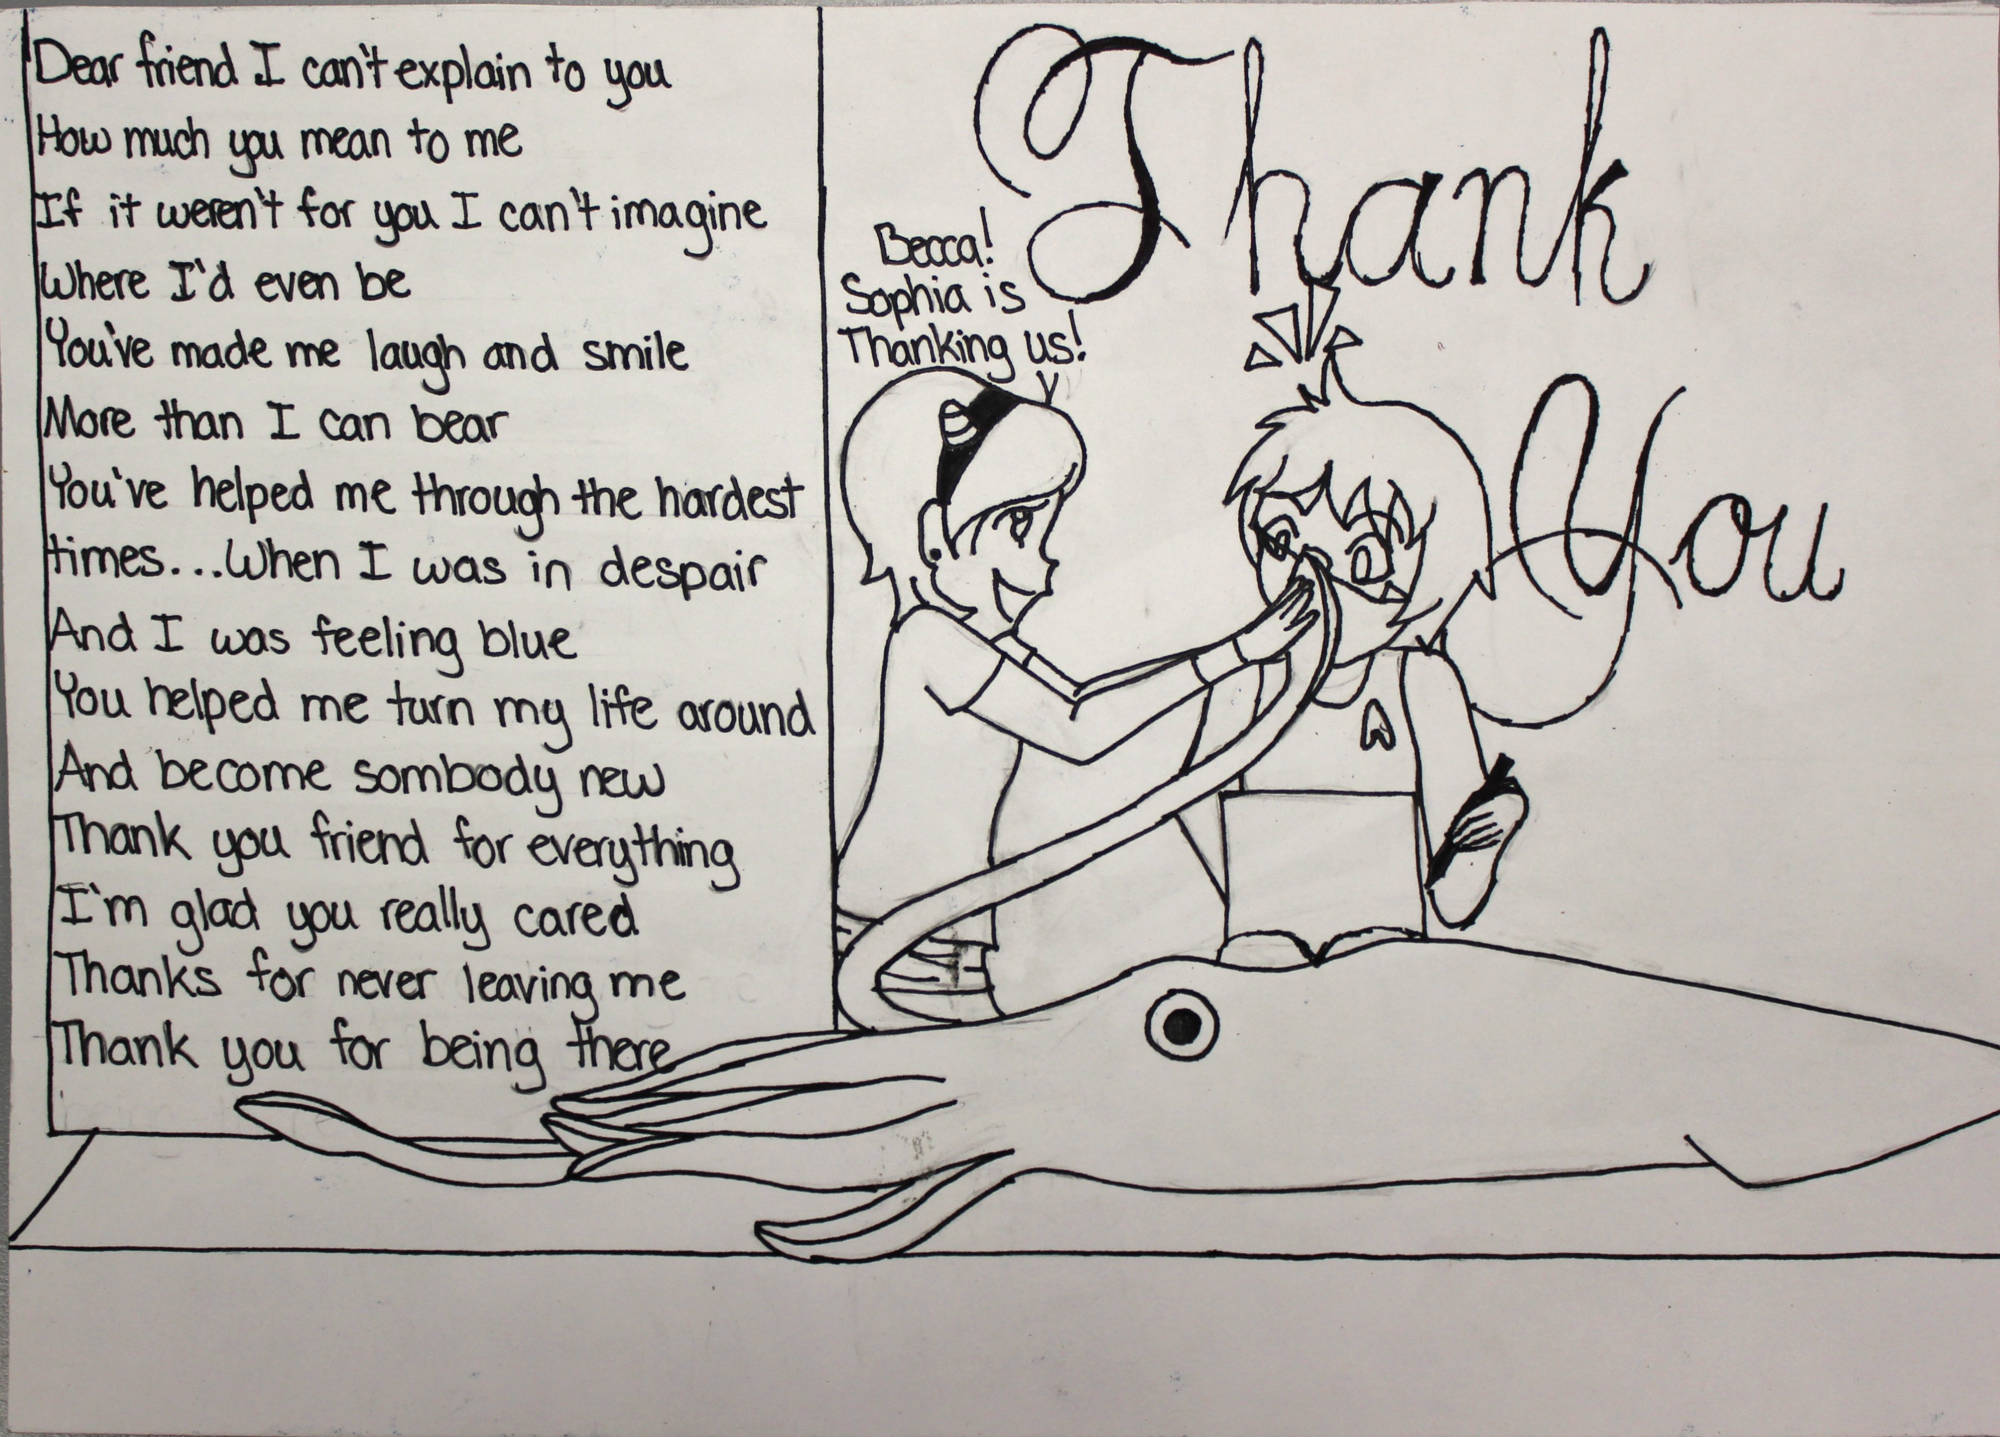 Dear friend I can't explain to you
How much you mean to me
If it weren't for you I can't imagine
Where I'd even be
You've made me laugh and smile
More than I can bear
You've helped me through the hardest
times...When I was in despair
And I was feeling blue
You helped me turn my life around
And become sombody new
Thank you friend for everything
I'm glad you really cared
Thanks for never leaving me
Thank you for being there
Thank
You
Becca!
Sophia is
Thanking us!